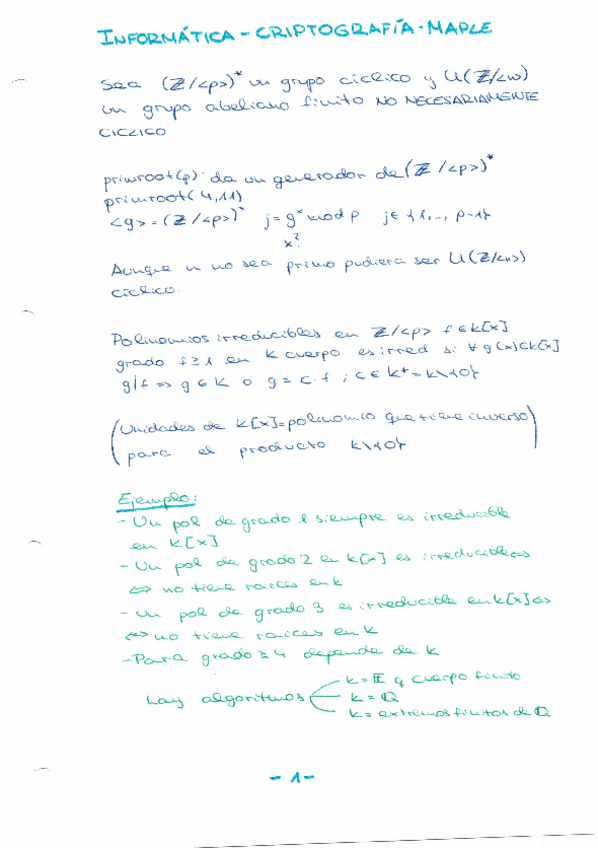 INFORMÁTICA - CRIPTOGRAFÍA - MAPLE
Sea (Z/<p>)* un grupo cíclico y U(Z/<n>)
un grupo abeliano finito NO NECESARIAMENTE
CICLICO
primroot(p) da un generador de (Z/<p>)*
primroot(4,11)
<g> = (Z/<p>)* j = g^x mod p j∈{1,..., p-1}
x?
Aunque n no sea primo pudiera ser U(Z/<n>)
cíclico.
Polinomios irreducibles en Z/<p> f∈k[x]
grado f≥1 en k cuerpo es irred si ∀g(x)∈k[x]
g|f => g∈k o g = c·f ; c∈k* = k\{0}
(Unidades de k[x]=polinomio que tiene inverso
para el producto k\{0})
Ejemplo:
- Un pol de grado 1 siempre es irreducible
en k[x]
- Un pol de grado 2 en k[x] es irreducible <=>
<=> no tiene raíces en k
- Un pol de grado 3 es irreducible en k[x] <=>
<=> no tiene raices en k
- Para grado ≥ 4 depende de k
k = F q cuerpo finito
hay algoritmos k = Q
k = extremos finitos de Q
- 1 -